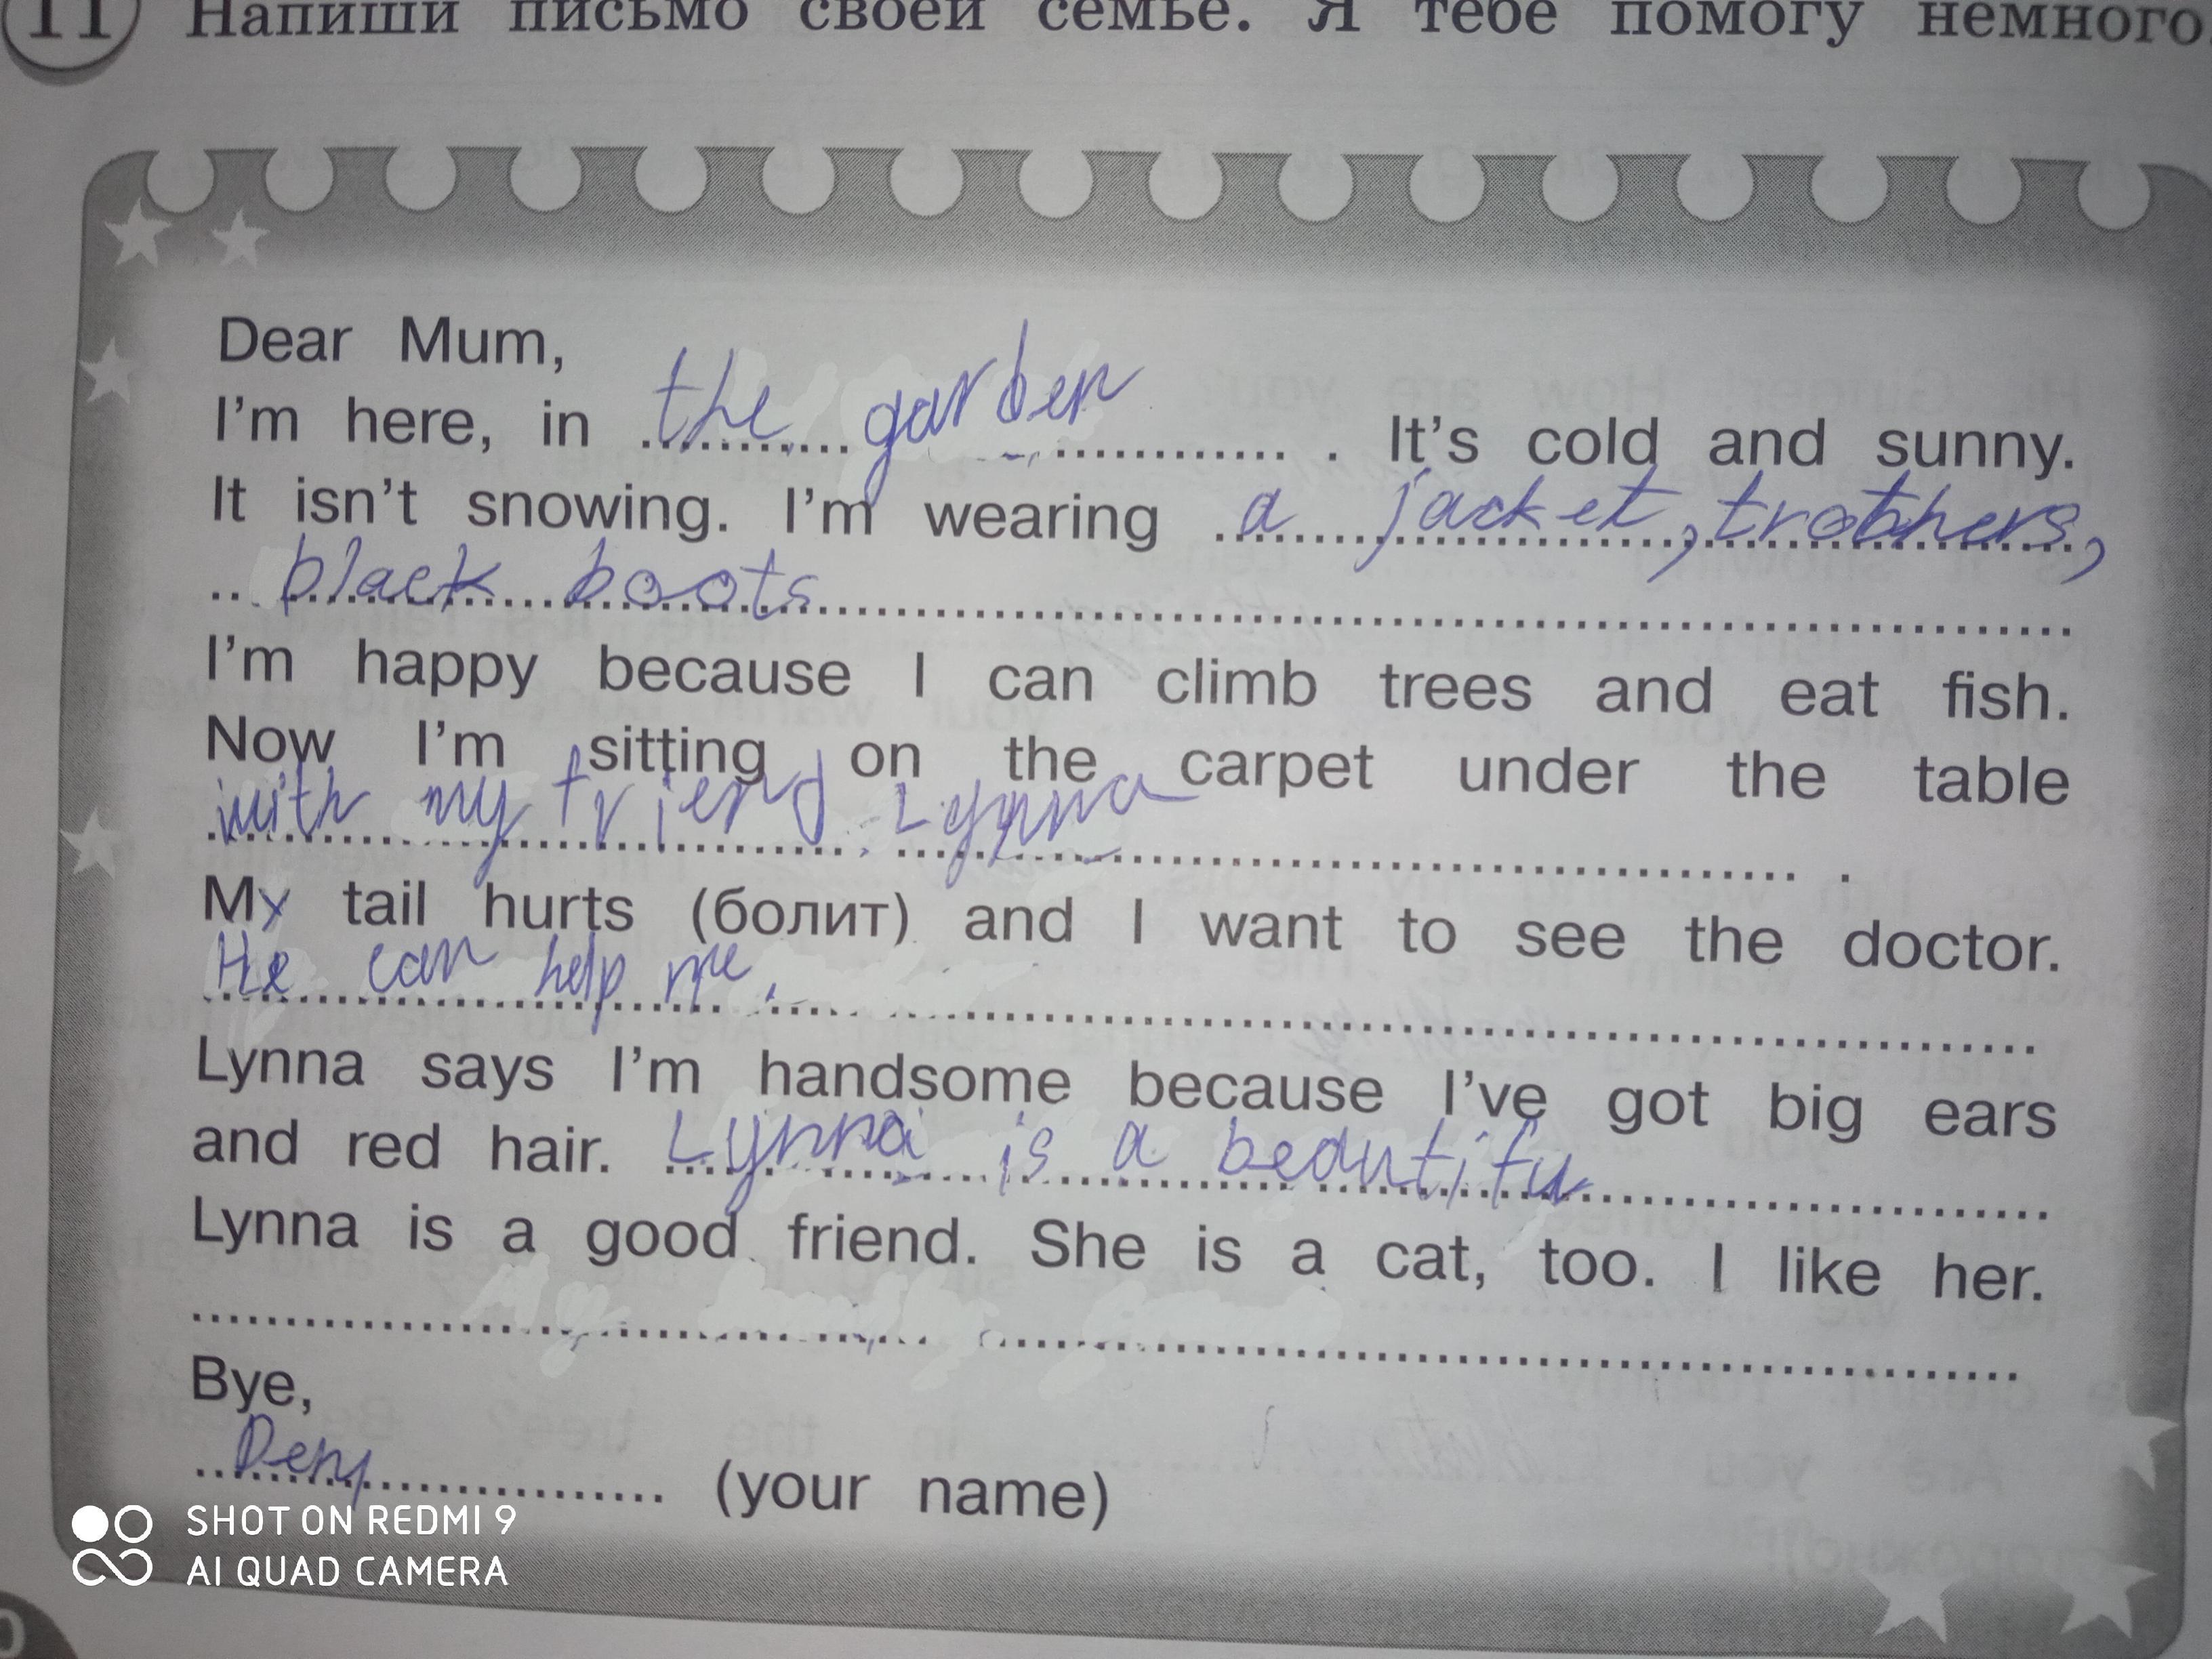 11 Напиши письмо своей семье. Я тебе помогу немного.
Dear Mum,
I'm here, in the garden . It's cold and sunny.
It isn't snowing. I'm wearing a jacket,
black boots
I'm happy because I can climb trees and eat fish.
Now I'm sitting on the carpet under the table
with my friend Lynna .
My tail hurts (болит) and I want to see the doctor.
He can help me.
Lynna says I'm handsome because I've got big ears
and red hair. Lynna is a beautifu
Lynna is a good friend. She is a cat, too. I like her.
Bye,
(your name)
SHOT ON REDMI 9
AI QUAD CAMERA